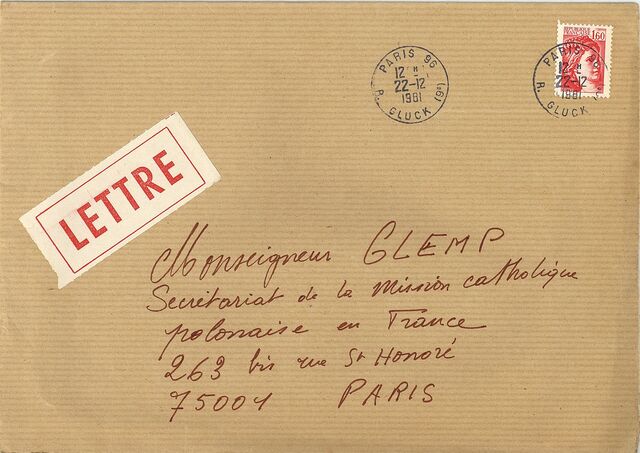 PARIS 96
12 H
22-12
1981
R. GLUCK (9e)
1,60
PARIS 96
12 H
22-12
1981
R. GLUCK
LETTRE
Monseigneur GLEMP
Secrétariat de la mission catholique
polonaise en France
263 bis rue St Honoré
75001 PARIS